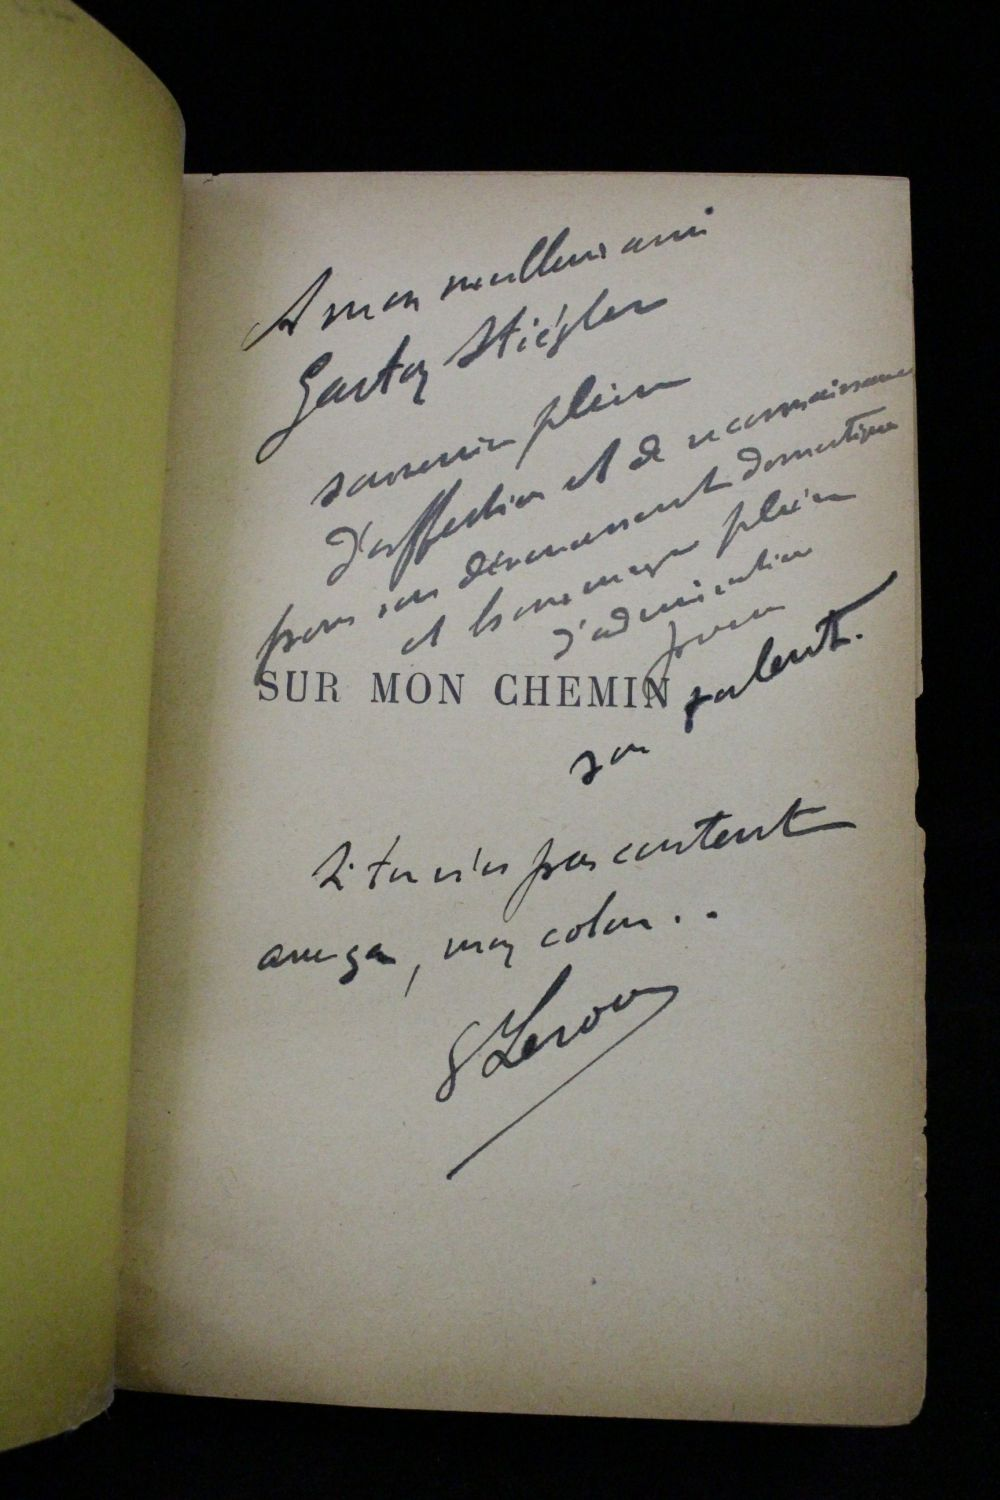 A mon meilleur ami
Gaston Stiégler
souvenir plein
d'affection et de reconnaissance
pour son dévouement domestique
et hommage plein
d'admiration
pour
son talent.
SUR MON CHEMIN
Si tu n'es pas content
avec ça, mon colon..
G Leroux